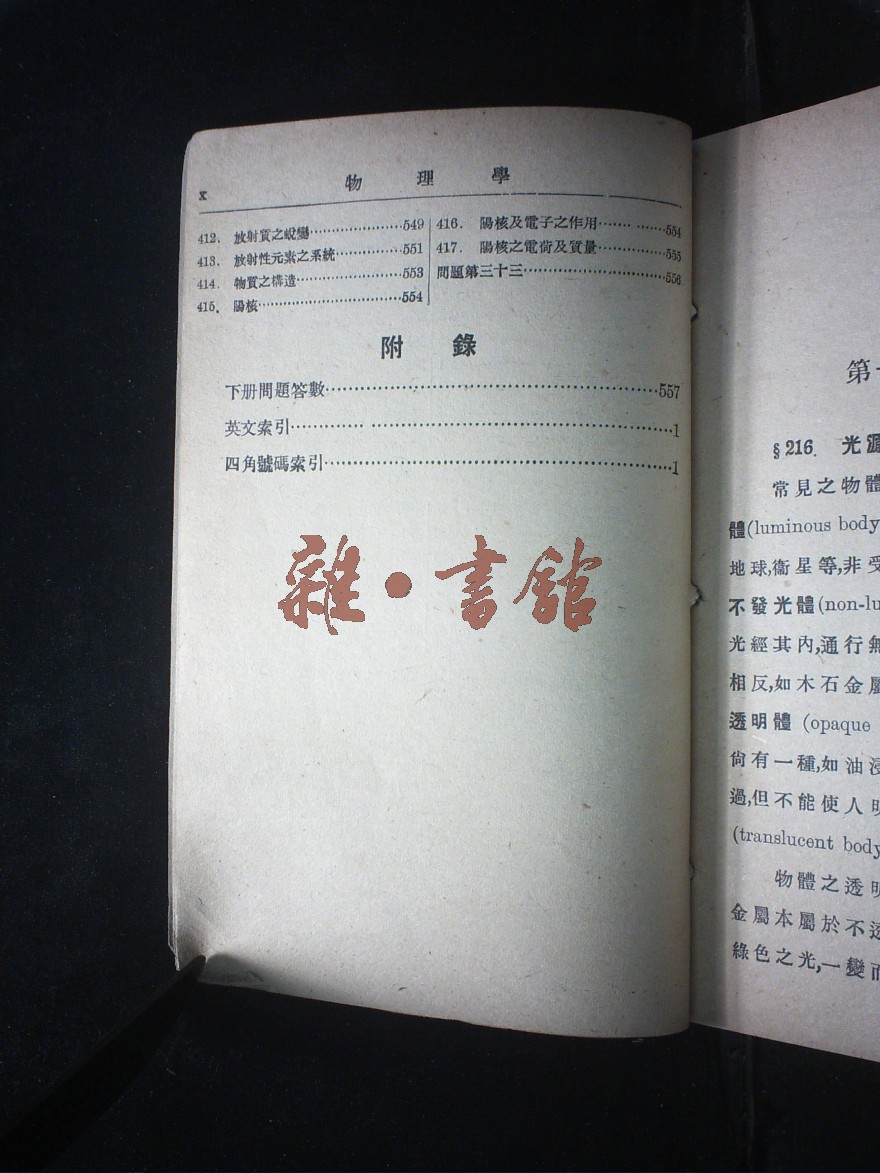 x
物理學
412. 放射質之蛻變……………………549
413. 放射性元素之系統……………551
414. 物質之構造………………………553
415. 陽核………………………………554
416. 陽核及電子之作用……………554
417. 陽核之電荷及質量……………555
問題第三十三………………………………556
附錄
下册問題答數………………………………557
英文索引………………………………1
四角號碼索引………………………………1
雜·書館
第
§216. 光源
常見之物體
體(luminous body
地球,衞星等,非受
不發光體(non-lu
光經其內,通行無
相反,如木石金屬
透明體 (opaque
尙有一種,如油浸
過,但不能使人明
(translucent body
物體之透明
金屬本屬於不透
綠色之光,一變而